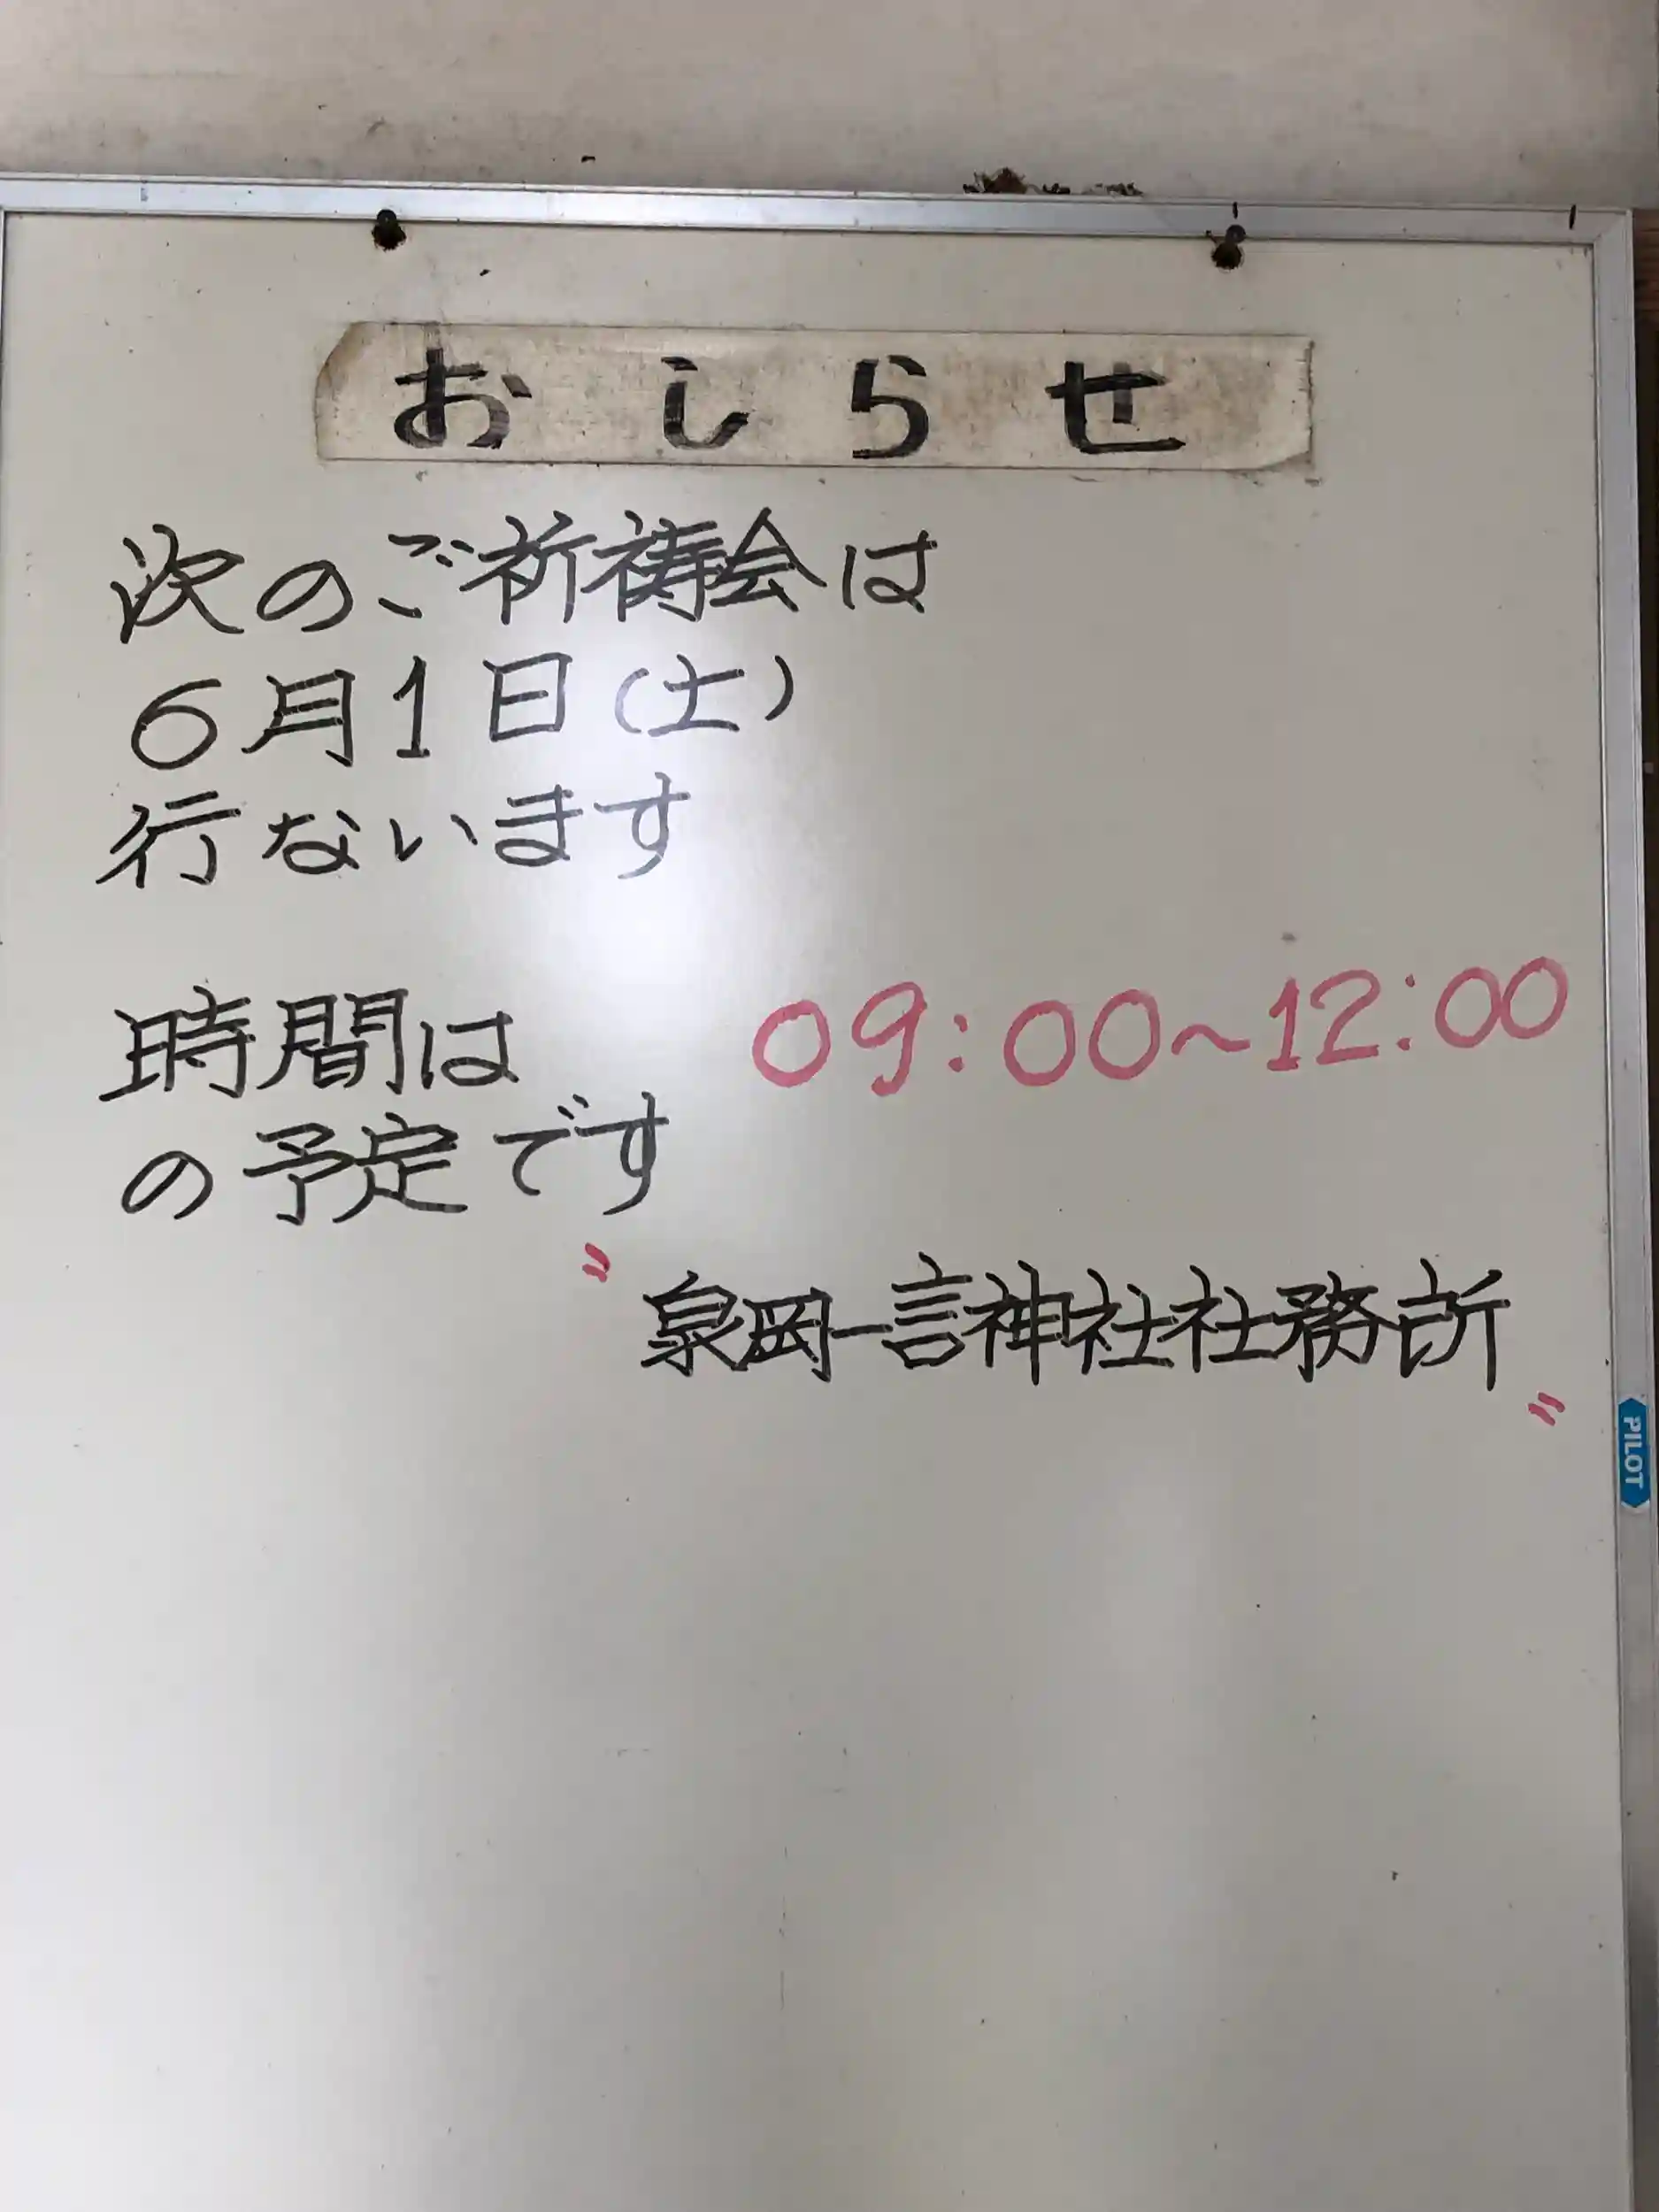 おしらせ
次のご祈祷会は
6月1日(土)
行ないます
時間は 09:00~12:00
の予定です
〝泉岡一言神社社務所〟
PILOT